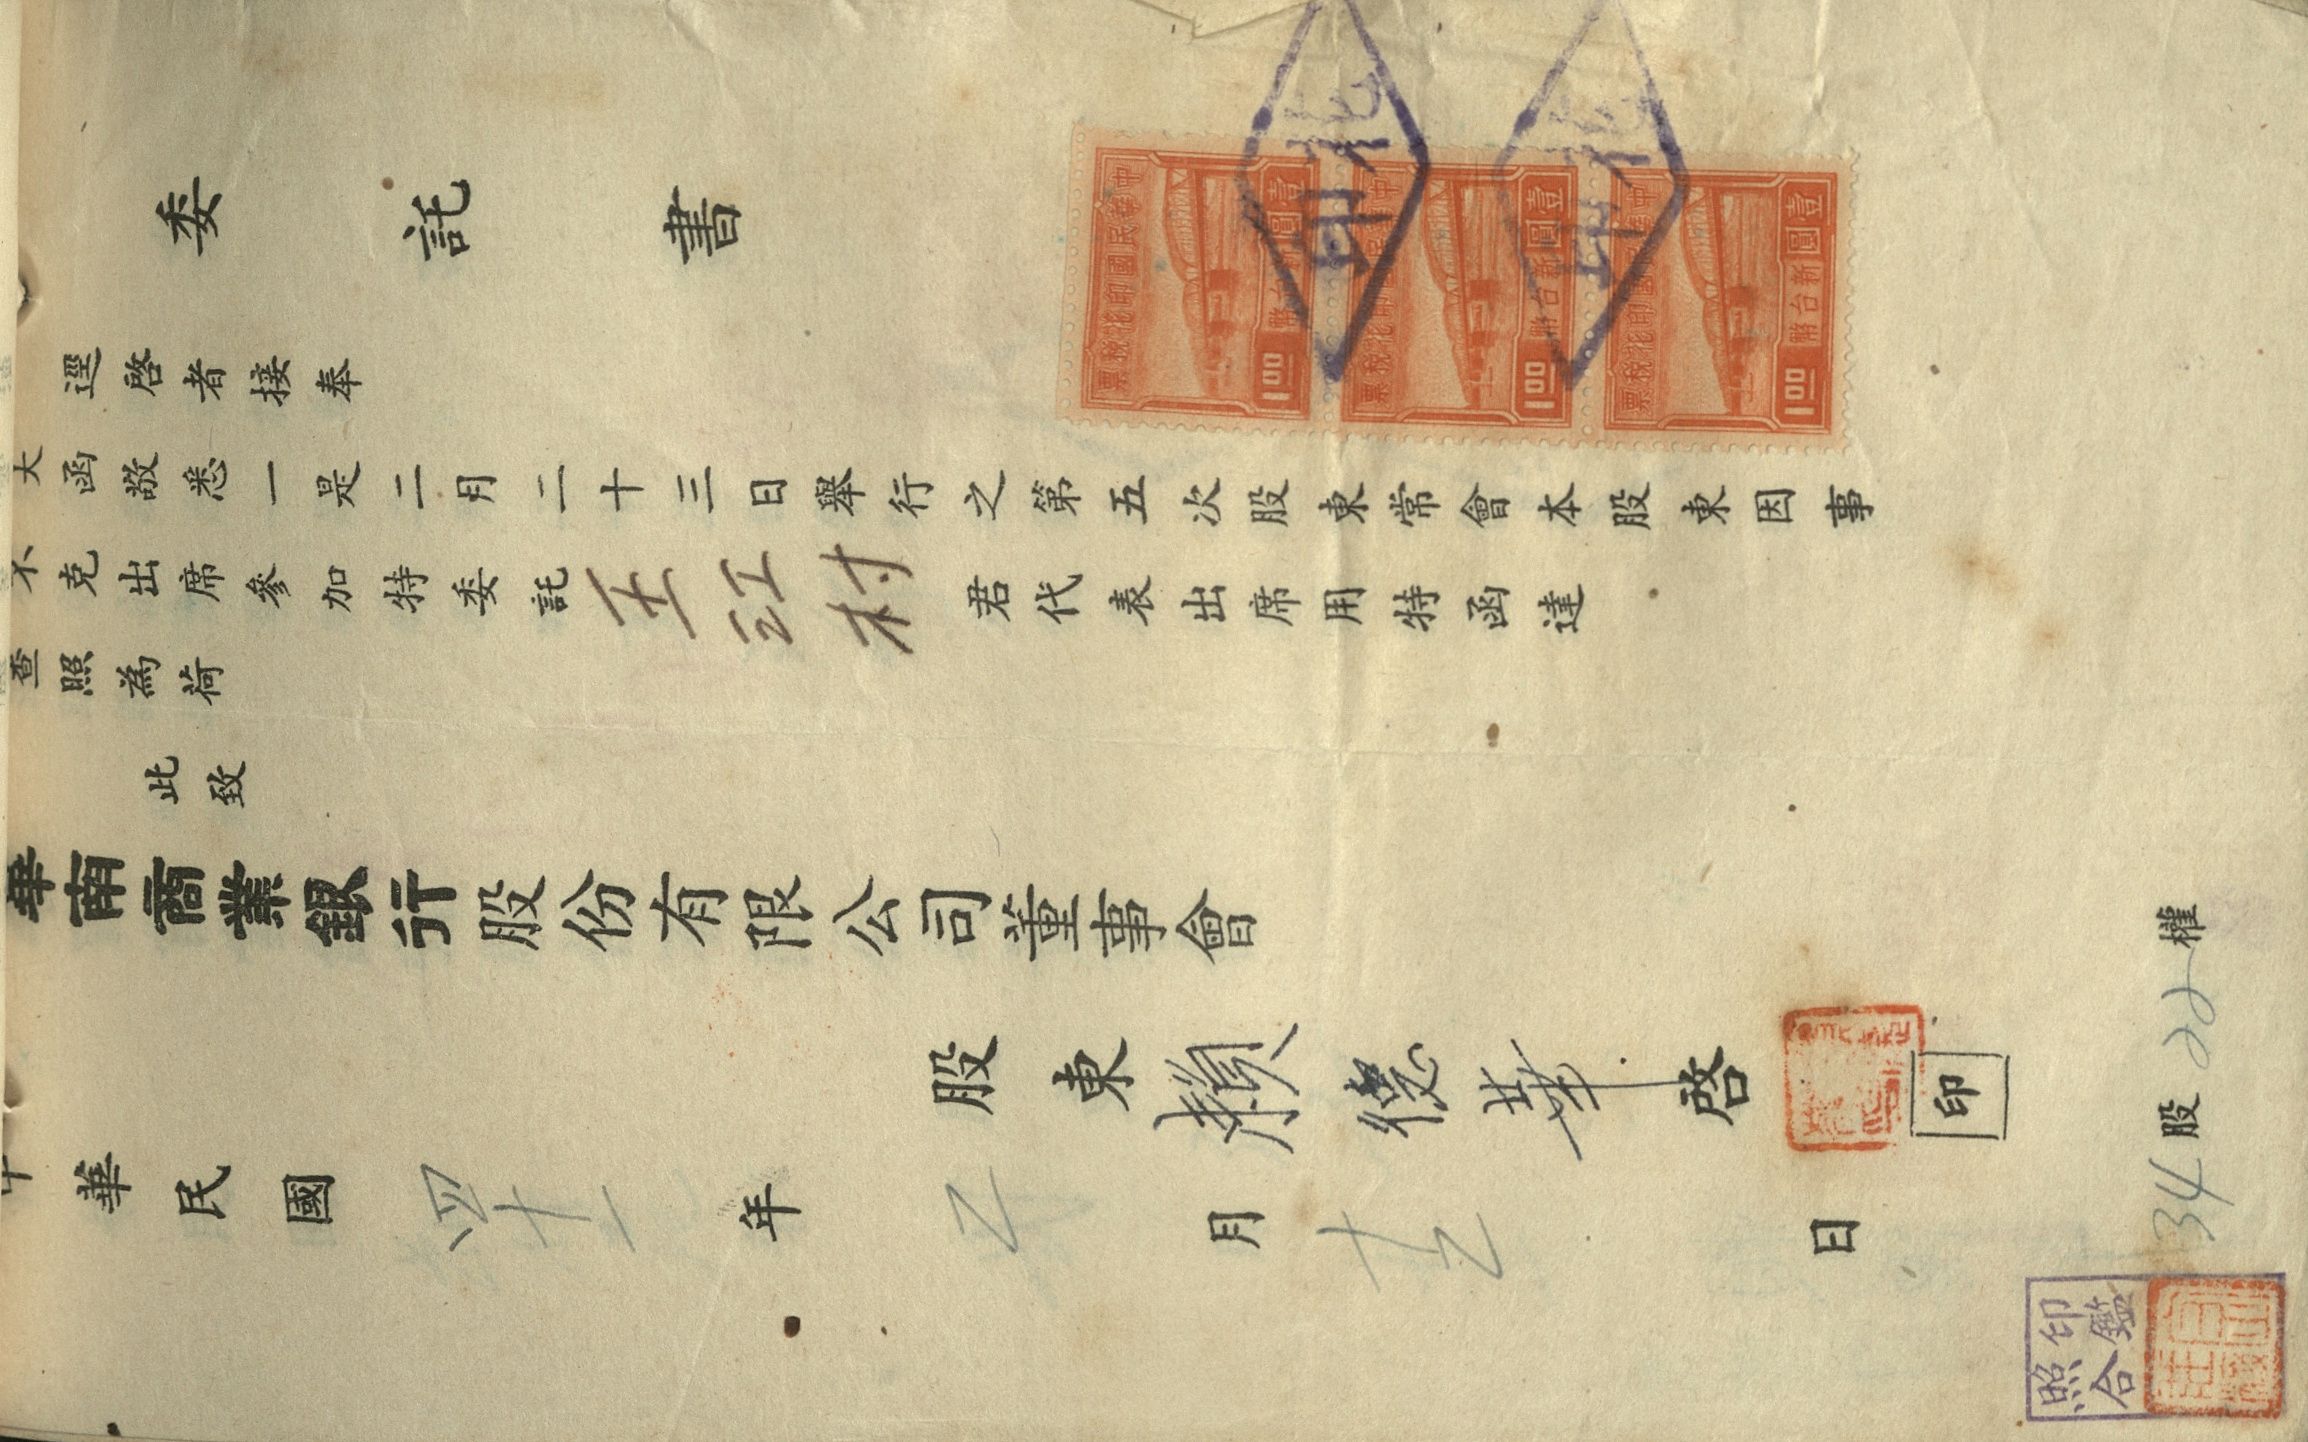 委託書
逕啓者接奉
大函敬悉一是二月二十三日舉行之第五次股東常會本股東因事
不克出席參加特委託王江村君代表出席用特函達
查照為荷
此致
華南商業銀行股份有限公司董事會
股東賴德華啓
印
中華民國四十一年乙月十乙日
34股22權
中華民國印花稅票
壹圓新台幣
1.00
中華民國印花稅票
壹圓新台幣
1.00
中華民國印花稅票
壹圓新台幣
1.00
印鑑
照合